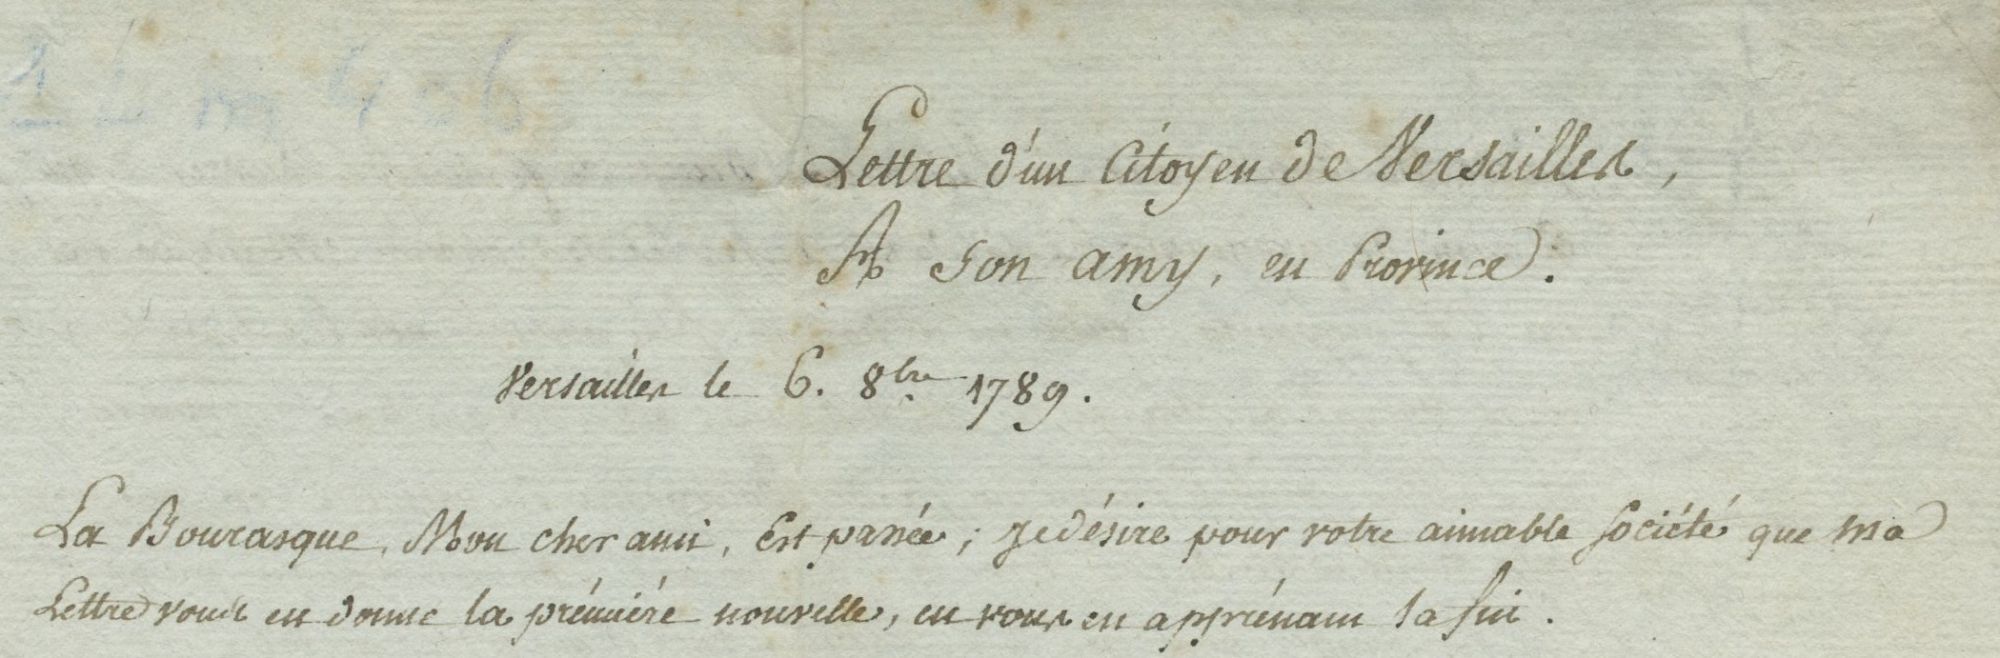 Lettre d'un Citoyen de Versailles,
A son amy, en Province.
Versailles le 6. 8bre 1789.
La Bourasque, Mon cher ami, Est passée; je désire pour votre aimable société que ma
Lettre vous en donne la prémiére nouvelle, en vous en apprénant la fin.